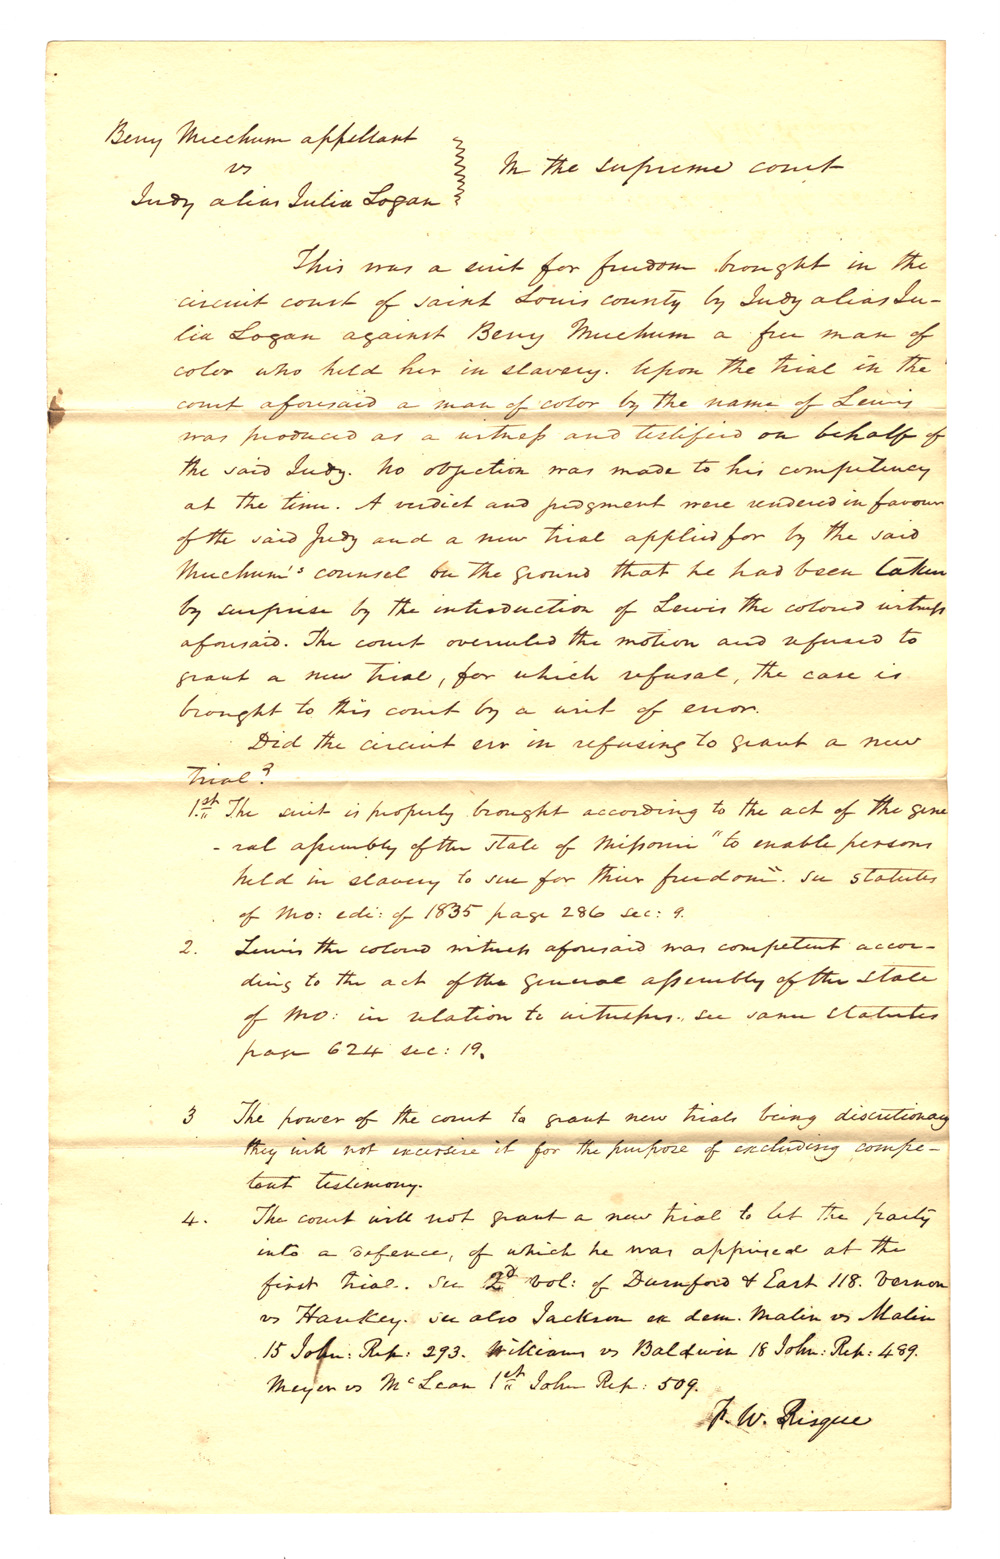 Berry Meechum appellant
vs
Judy alias Julia Logan
In the supreme court
This was a suit for freedom brought in the
circuit court of saint Louis county by Judy alias Ju-
lia Logan against Berry Meechum a free man of
color who held her in slavery. Upon the trial in the
court aforesaid a man of color by the name of Lewis
was produced as a witness and testified on behalf of
the said Judy. No objection was made to his competency
at the time. A verdict and judgment were rendered in favour
of the said Judy and a new trial applied for by the said
Meechum's counsel on the ground that he had been taken
by surprise by the introduction of Lewis the colored witness
aforesaid. The court overruled the motion and refused to
grant a new trial, for which refusal, the case is
brought to this court by a writ of error.
Did the circuit err in refusing to grant a new
trial?
1.st The suit is properly brought according to the act of the gene
-ral assembly of the state of Missouri "to enable persons
held in slavery to sue for thier freedom". see statutes
of Mo: edi: of 1835 page 286 sec: 9.
2. Lewis the colored witness aforesaid was competent accor-
ding to the act of the general assembly of the state
of Mo: in relation to witnesses. see same statutes
page 624 sec: 19.
3 The power of the court to grant new trials being discretionary
they will not excersise it for the purpose of excluding compe-
tent testimony.
4. The court will not grant a new trial to let the party
into a defence, of which he was apprised at the
first trial. see 2d vol: of Durnford & East 118. Vernon
vs Hankey. see also Jackson ex dem. Malin vs Malin
15 John: Rep: 293. Williams vs Baldwin 18 John: Rep: 489.
Meyer vs McLean 1st John Rep: 509.
F. W. Risque